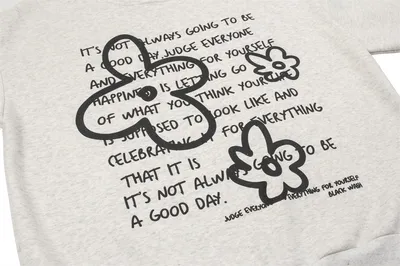 IT'S NOT ALWAYS GOING TO BE
A GOOD DAY. JUDGE EVERYONE
AND EVERYTHING FOR YOURSELF
HAPPINESS IS LETTING GO
OF WHAT YOU THINK YOUR LIFE
IS SUPPOSED TO LOOK LIKE AND
CELEBRATING FOR EVERYTHING
THAT IT IS
IT'S NOT ALWAYS GOING TO BE
A GOOD DAY.
JUDGE EVERYONE EVERYTHING FOR YOURSELF
BLACK